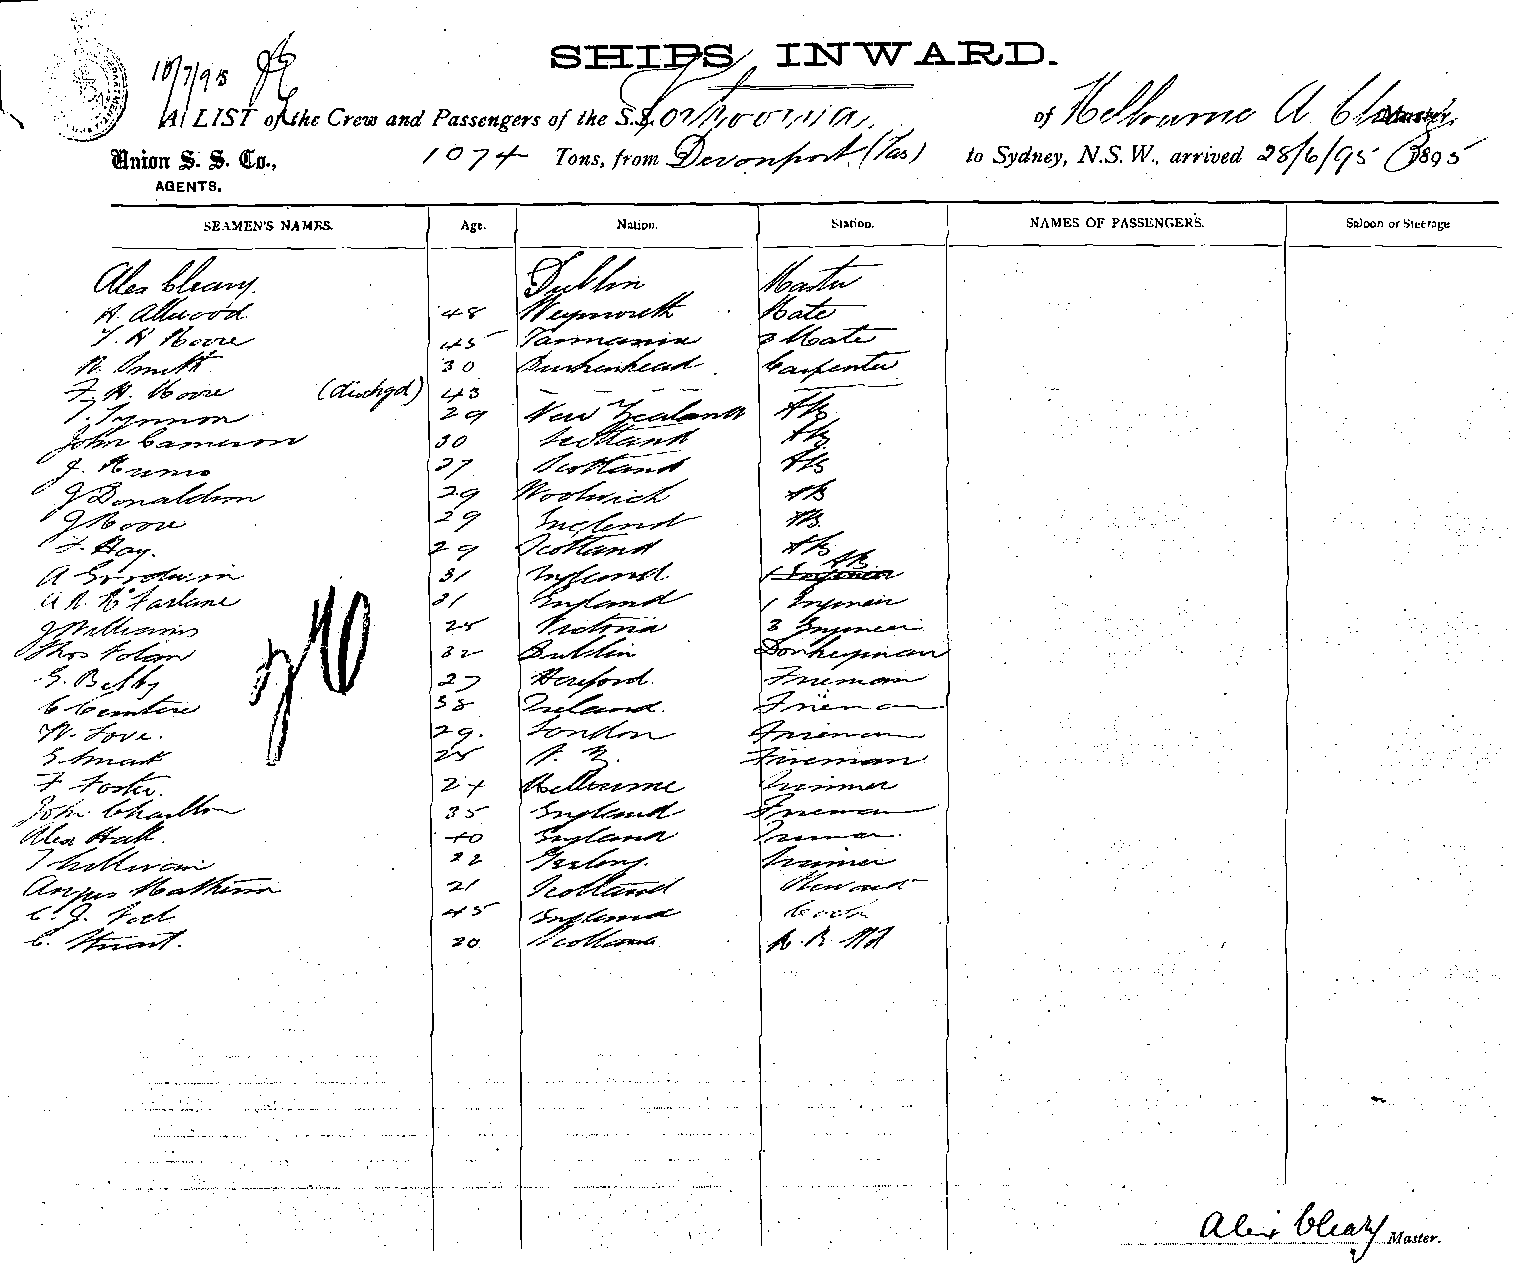 SHIPS INWARD.
10/7/95
A LIST of the Crew and Passengers of the S.S. of Melbourne A. Master
Union S. S. Co., 1074 Tons, from Devonport (Tas) to Sydney, N.S.W., arrived 28/6/95 1895
AGENTS.
SEAMEN'S NAMES. Age. Nation. Station. NAMES OF PASSENGERS. Saloon or Steerage
Alex Cleary. Dublin Master
A. Allwood 48 Weymouth Mate
T. H Moore 45 Tasmania 2 Mate
W. Smith 30 Birkenhead Carpenter
F. H. Moore (dischgd) 43
29 New Zealand AB
John Cameron 30 Scotland AB
J. 27 Scotland AB
J Donaldson 29 Woolwich AB
J Moore 29 England AB
F. Hay. 29 Scotland AB
A Goodwin 31 England 1 Engineer AB
A R. McFarlane 31 England 1 Engineer
J Williams 25 Victoria 3 Engineer
Thos Nolan 32 Dublin Donkeyman
G. 27 Hereford. Fireman
C 38 Ireland. Fireman
W. Love. 29. London Fireman
25 N. Z. Fireman
F Foster. 24 Melbourne Trimmer
John Charlton 35 England Fireman
Alex Hall. 40 England
22 Geelong. Trimmer
Angus 21 Scotland Steward
C. J. 45 England Cook
C. Stuart. 20 Scotland
Alex Cleary Master.